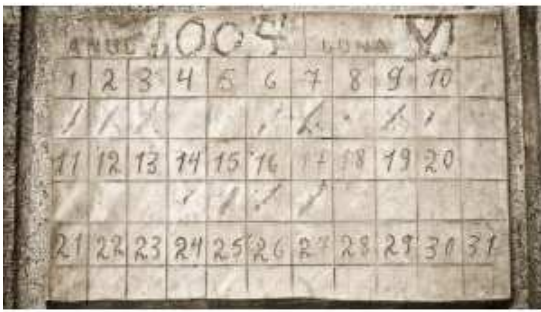 ANUL 2004 LUNA VI
1 2 3 4 5 6 7 8 9 10
11 12 13 14 15 16 17 18 19 20
21 22 23 24 25 26 27 28 29 30 31